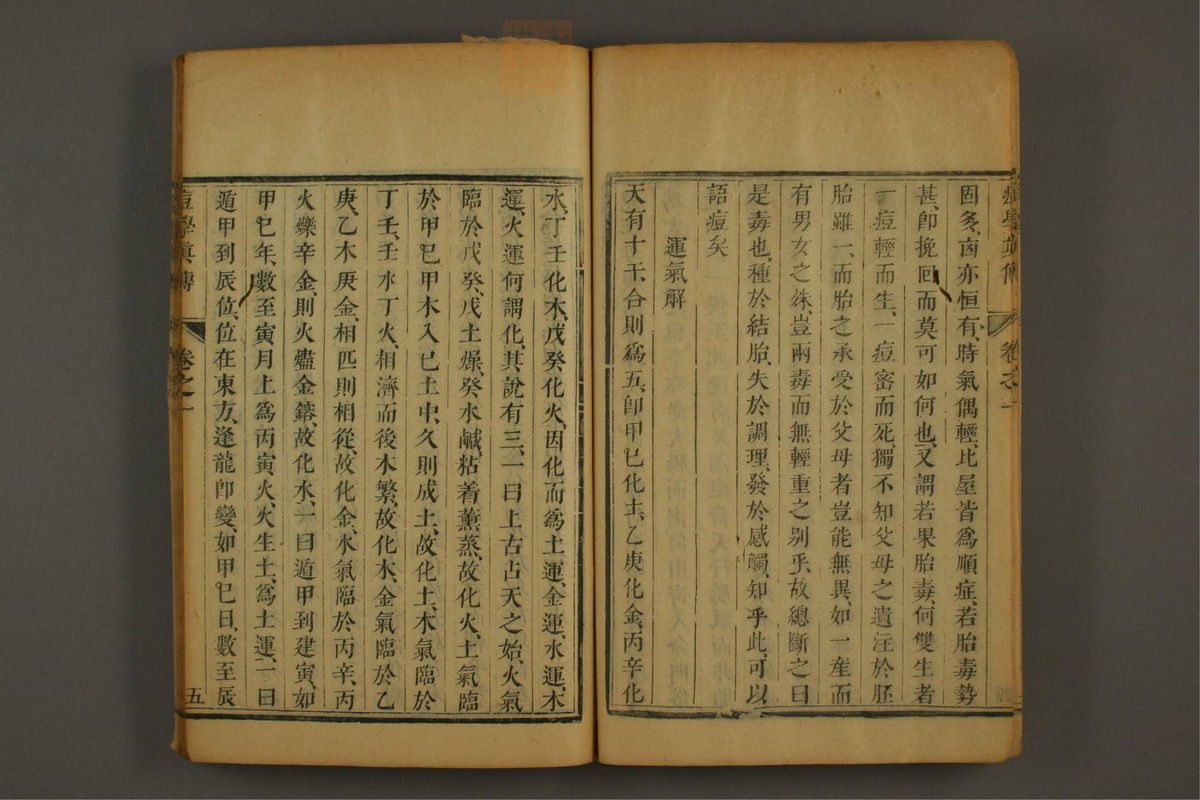 痘學真傳 卷之一
固多、卤亦恒有、時氣偶輕、比屋皆爲順症、若胎毒勢
甚、卽挽回而莫可如何也、又謂若果胎毒、何雙生者
一痘輕而生、一痘密而死、獨不知父母之遺注於胚
胎雖一、而胎之承受於父母者豈能無異、如一產而
有男女之殊、豈兩毒而無輕重之别乎、故總斷之曰
是毒也、種於結胎、失於調理、發於感觸、知乎此、可以
語痘矣
運氣解
天有十干、合則爲五、卽甲巳化土、乙庚化金、丙辛化
水、丁壬化木、戊癸化火、因化而爲土運、金運、水運、木
運、火運、何謂化、其說有三、一曰上古占天之始、火氣
臨於戌癸、戊土燥、癸水鹹、粘着薰蒸、故化火、土氣臨
於甲巳、甲木入巳土中、久則成土、故化土、木氣臨於
丁壬、壬水丁火、相濟而後木繁、故化木、金氣臨於乙
庚、乙木庚金、相匹則相從、故化金、水氣臨於丙辛、丙
火爍辛金、則火燼金鎔、故化水、一曰遁甲到建寅、如
甲巳年、數至寅月上爲丙寅、火、火生土、爲土運、一曰
遁甲到辰位、位在東方、逢龍卽變、如甲巳日、數至辰
痘學真傳 卷之一 五